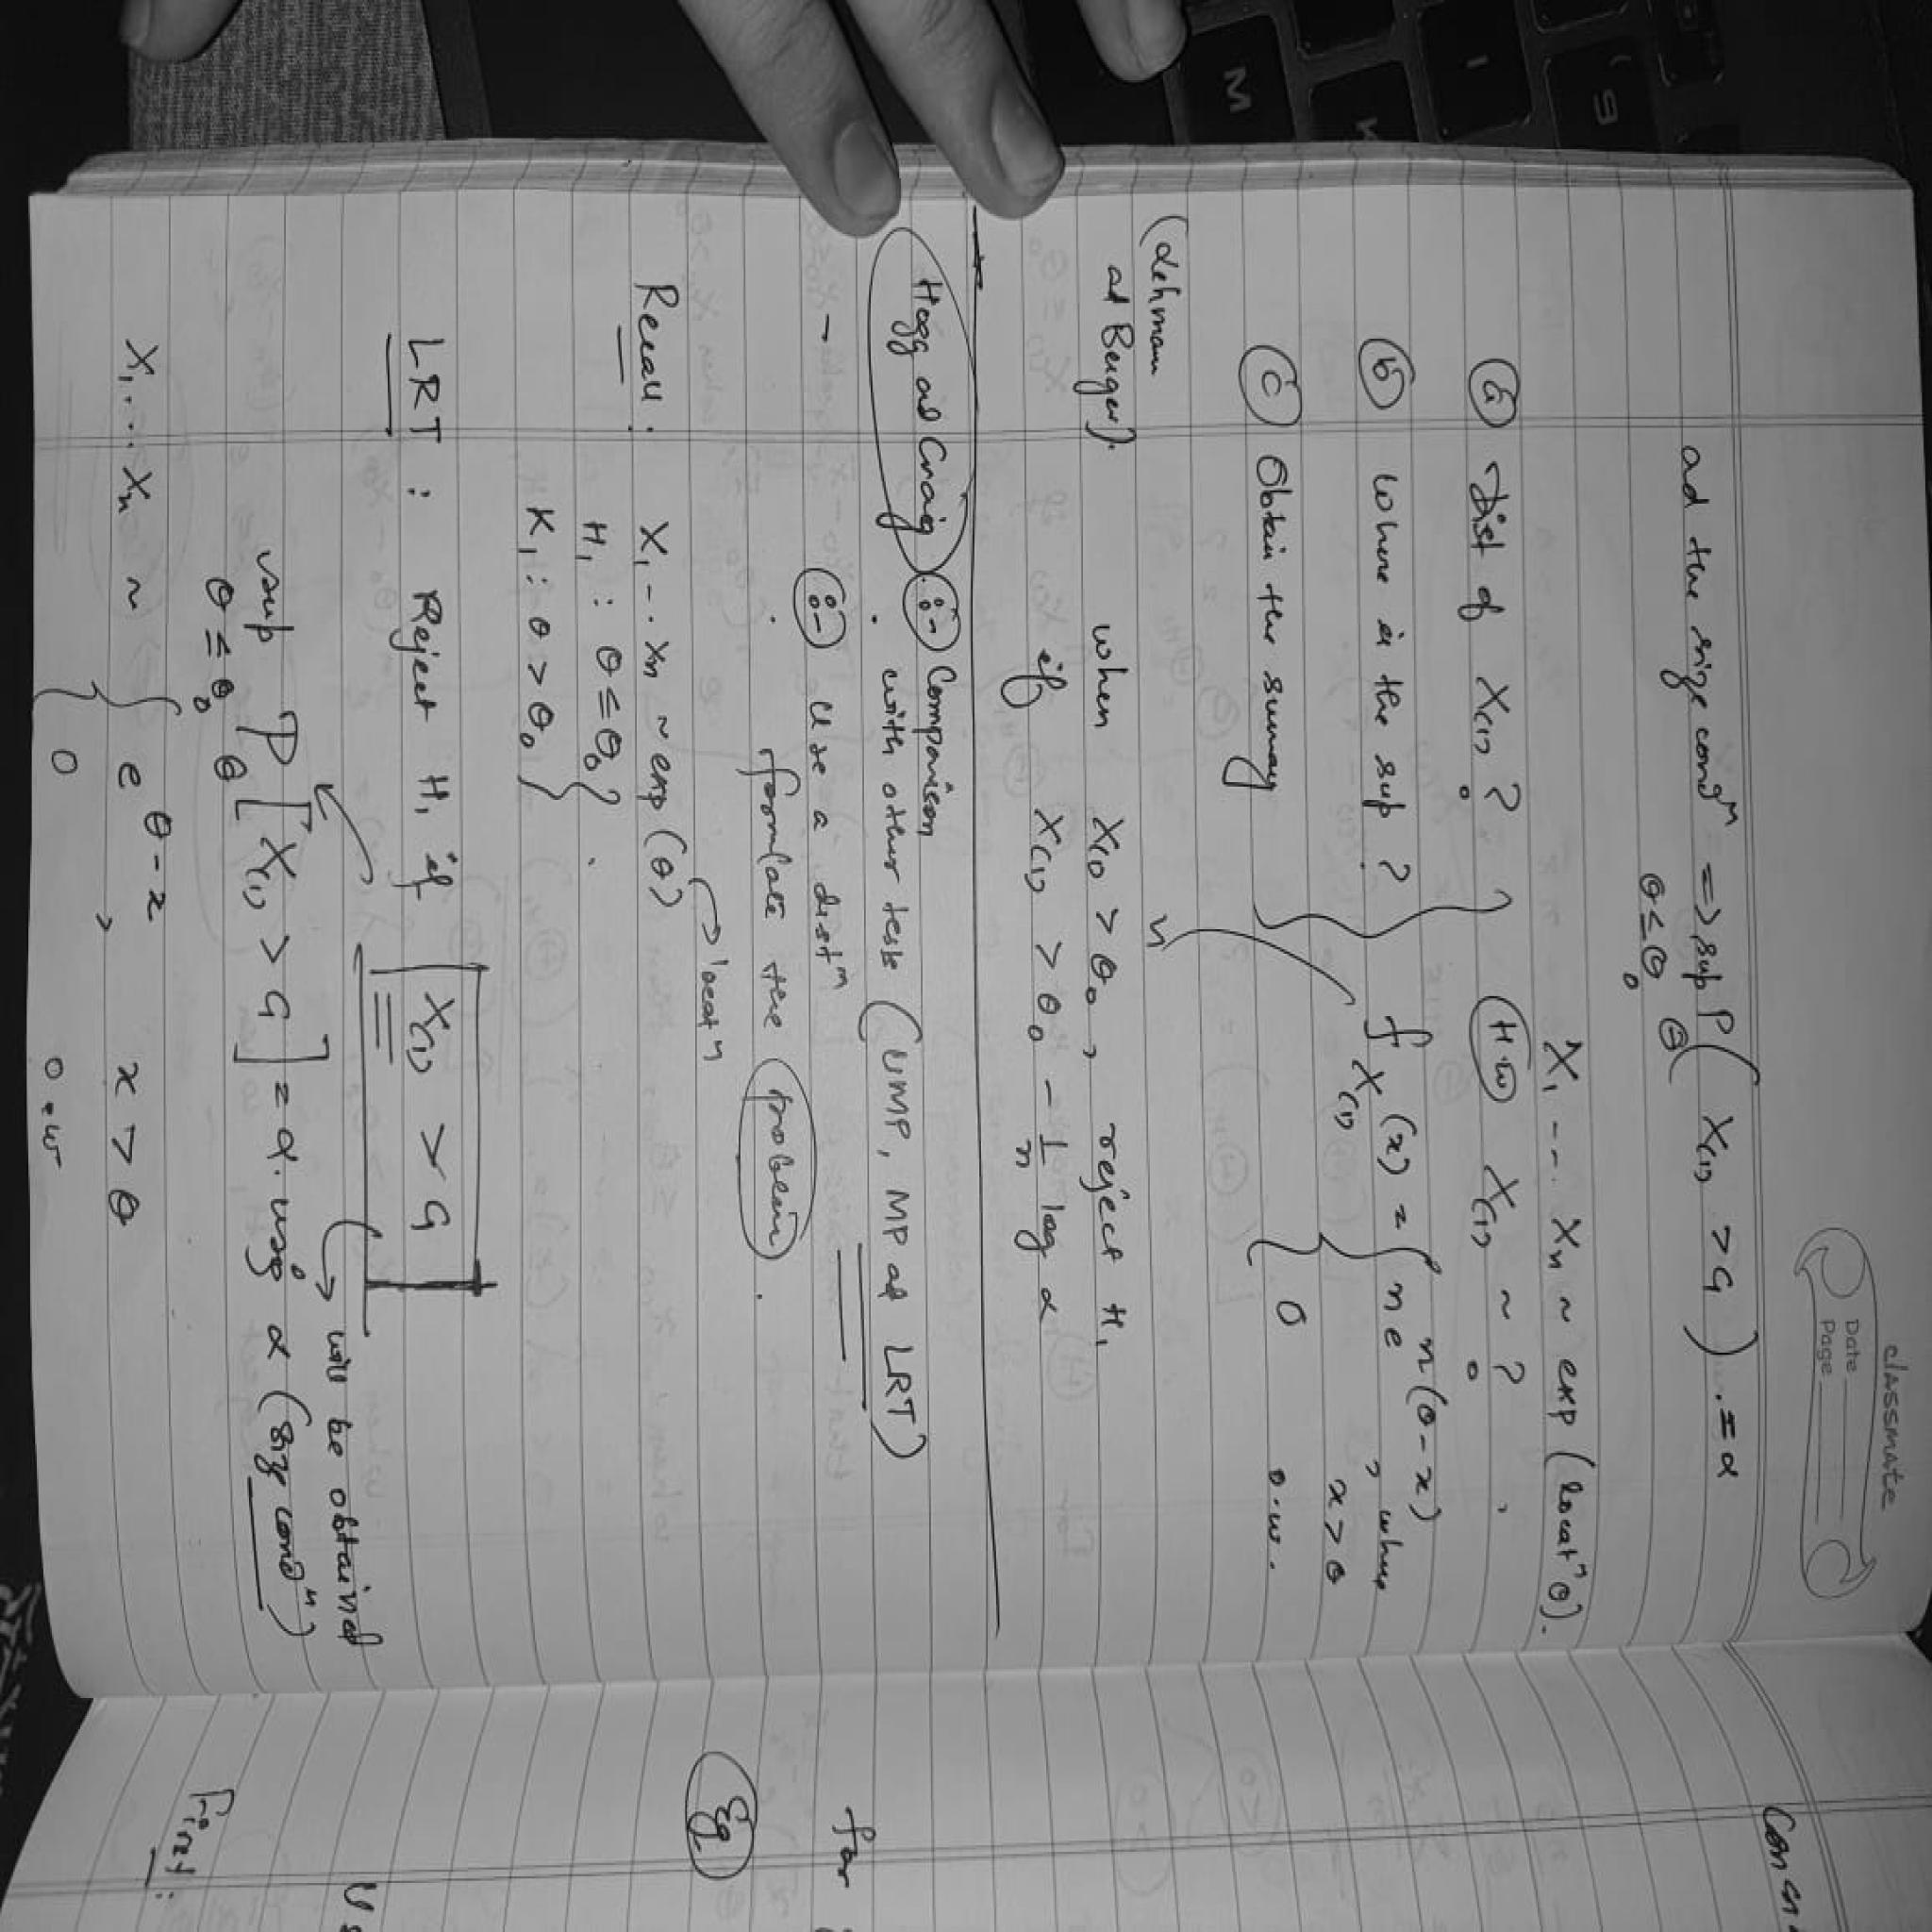 classmate
Date
Page
ad the size condⁿ => sup P_θ ( X(1) > C₁ ) . = α
θ ≤ θ₀
X₁ --- Xₙ ~ exp (locatⁿ θ).
(a) Dist of X(1) ?
(H.W) X(1) ~ ? .
(b) where is the sup ?
f_X(1) (x) = { n e^{n(θ-x)} , where
x > θ
(c) Obtain the summary
0 o.w.
(Lehman
ad Berger).
when X(1) > θ₀ , reject H₁
if X(1) > θ₀ - 1/n log α
Hogg ad Craig
Comparison
with other tests (UMP, MP ad LRT)
Use a distⁿ
formulate the problem .
Recall : X₁ -- Xₙ ~ exp (θ) → locatⁿ
H₁ : θ ≤ θ₀ }
K₁ : θ > θ₀ } .
LRT : Reject H₁ if X(1) > C₁
→ will be obtained
using α (size condⁿ)
sup P_θ [ X(1) > C₁ ] = α.
θ ≤ θ₀
X₁ ... Xₙ ~ { e^{θ-x} , x > θ
0 o.w
Eg
for
First :